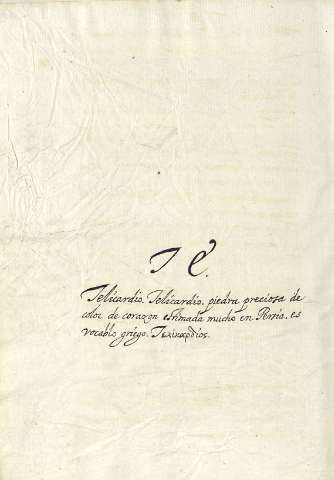 Te.
Telicardio. Telicardio. piedra preciosa de
color de corazon estimada mucho en Persia. es
vocablo griego. Τελικαρδιος.